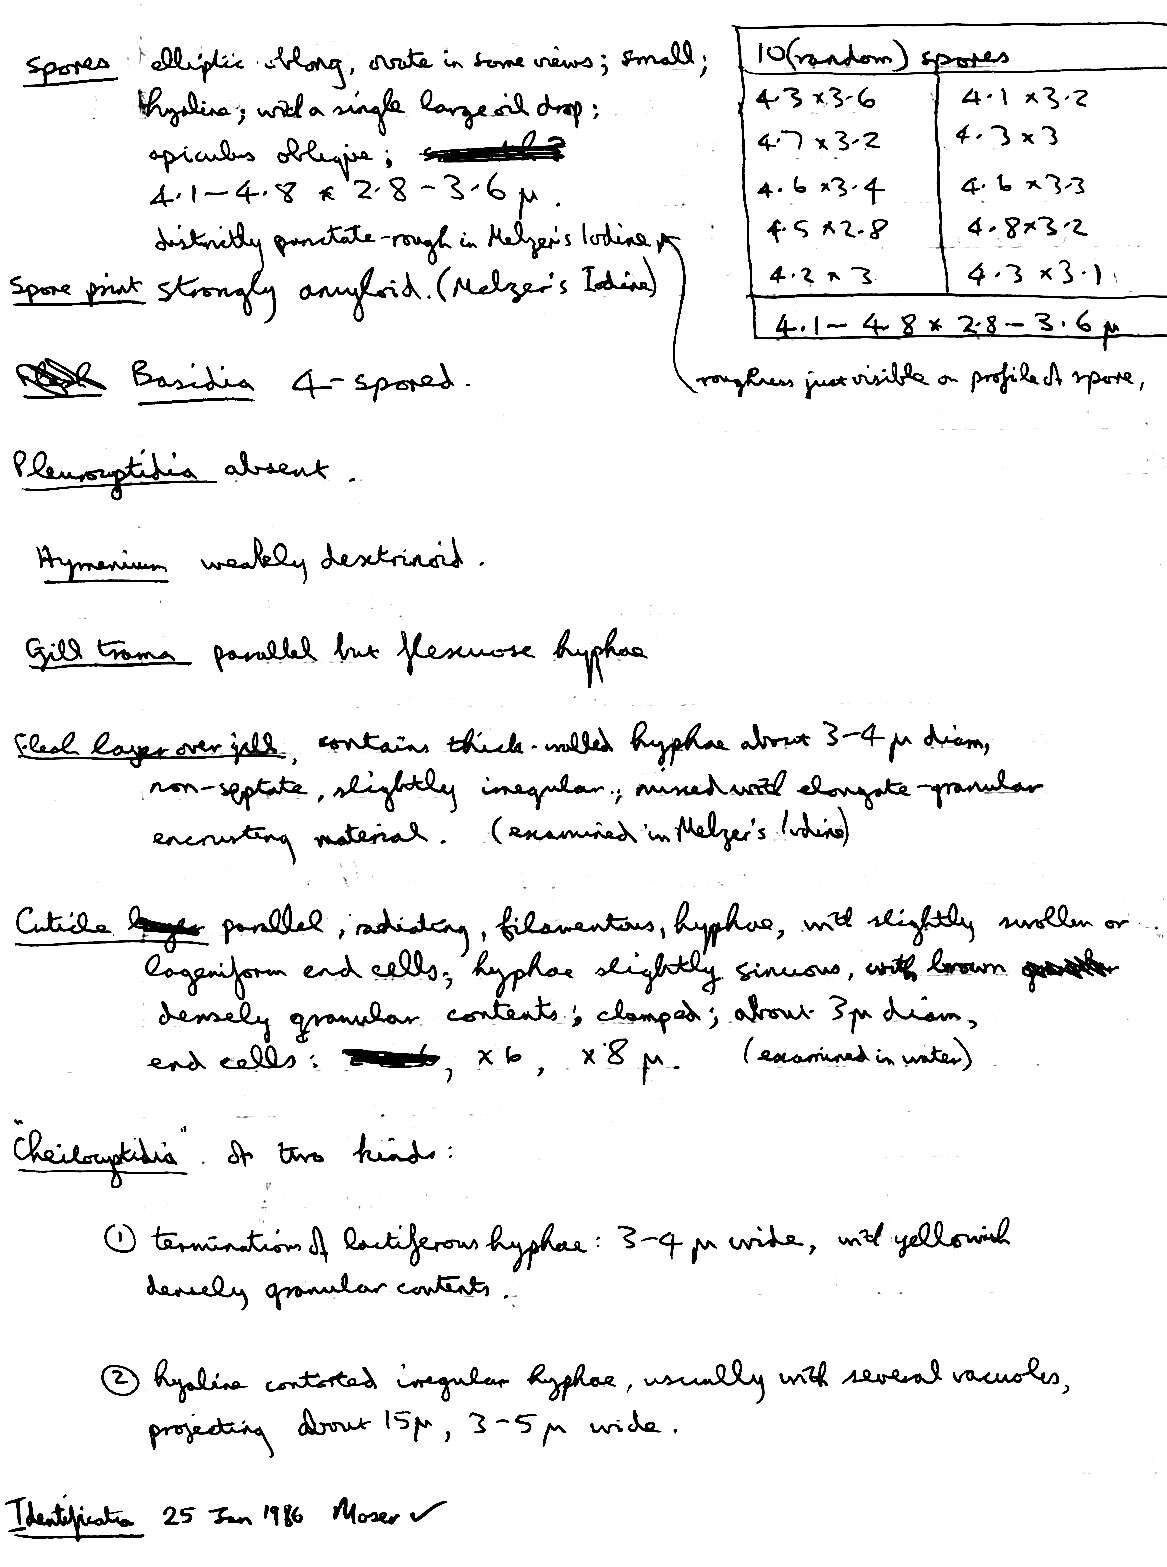 Spores elliptic oblong, ovate in some views; small;
hyaline; with a single large oil drop;
apiculus oblique;
4.1-4.8 x 2.8-3.6 μ.
distinctly punctate-rough in Melzer's Iodine
Spore print strongly amyloid. (Melzer's Iodine)
10 (random) spores
4.3 x 3.6 4.1 x 3.2
4.7 x 3.2 4.3 x 3
4.6 x 3.4 4.6 x 3.3
4.5 x 2.8 4.8 x 3.2
4.2 x 3 4.3 x 3.1
4.1-4.8 x 2.8-3.6 μ
roughness just visible on profile of spore,
Basidia 4-spored.
Pleurocystidia absent.
Hymenium weakly dextrinoid.
Gill trama parallel but flexuose hyphae
Flesh layer over gill, contains thick-walled hyphae about 3-4 μ diam,
non-septate, slightly irregular; mixed with elongate-granular
encrusting material. (examined in Melzer's Iodine)
Cuticle parallel, radiating, filamentous, hyphae, with slightly swollen or
lageniform end cells; hyphae slightly sinuous, with brown
densely granular contents; clamped; about 3μ diam,
end cells: , x 6, x 8 μ. (examined in water)
"Cheilocystidia" of two kinds:
① terminations of lactiferous hyphae: 3-4 μ wide, with yellowish
densely granular contents.
② hyaline contorted irregular hyphae, usually with several vacuoles,
projecting about 15μ, 3-5μ wide.
Identification 25 Jan 1986 Moser ✓